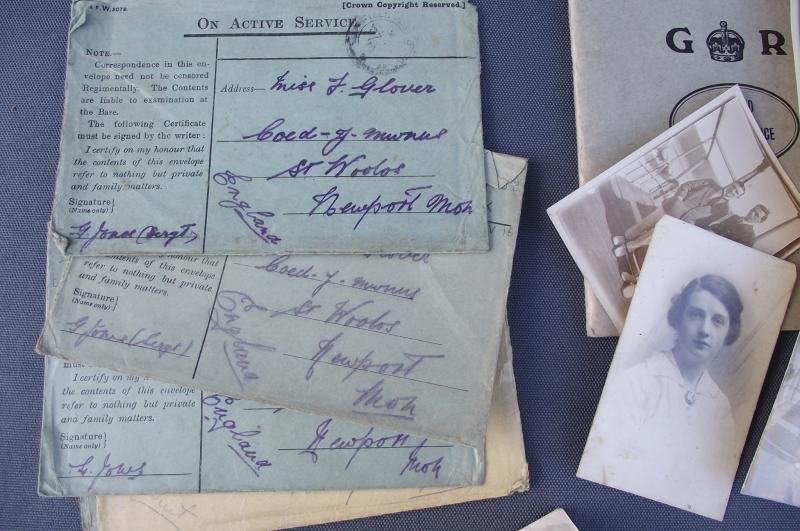 A.F.W.3078.
[Crown Copyright Reserved.]
On Active Service.
Note.—
Correspondence in this en-
velope need not be censored
Regimentally. The Contents
are liable to examination at
the Base.
The following Certificate
must be signed by the writer:
I certify on my honour that
the contents of this envelope
refer to nothing but private
and family matters.
Signature
(Name only)
G Jones (Sergt)
Address— Miss F. Glover
Coed-y-mwnus
St Woolos
Newport Mon
England
my honour that
tents of this envelope
refer to nothing but private
and family matters.
Signature
(Name only)
G Jones (Sergt)
Glover
Coed-y-mwnus
St Woolos
Newport
Mon
England
I certify on my
the contents of this envelope
refer to nothing but private
and family matters.
Signature
(Name only)
G. Jones
Newport
Mon
England
G R